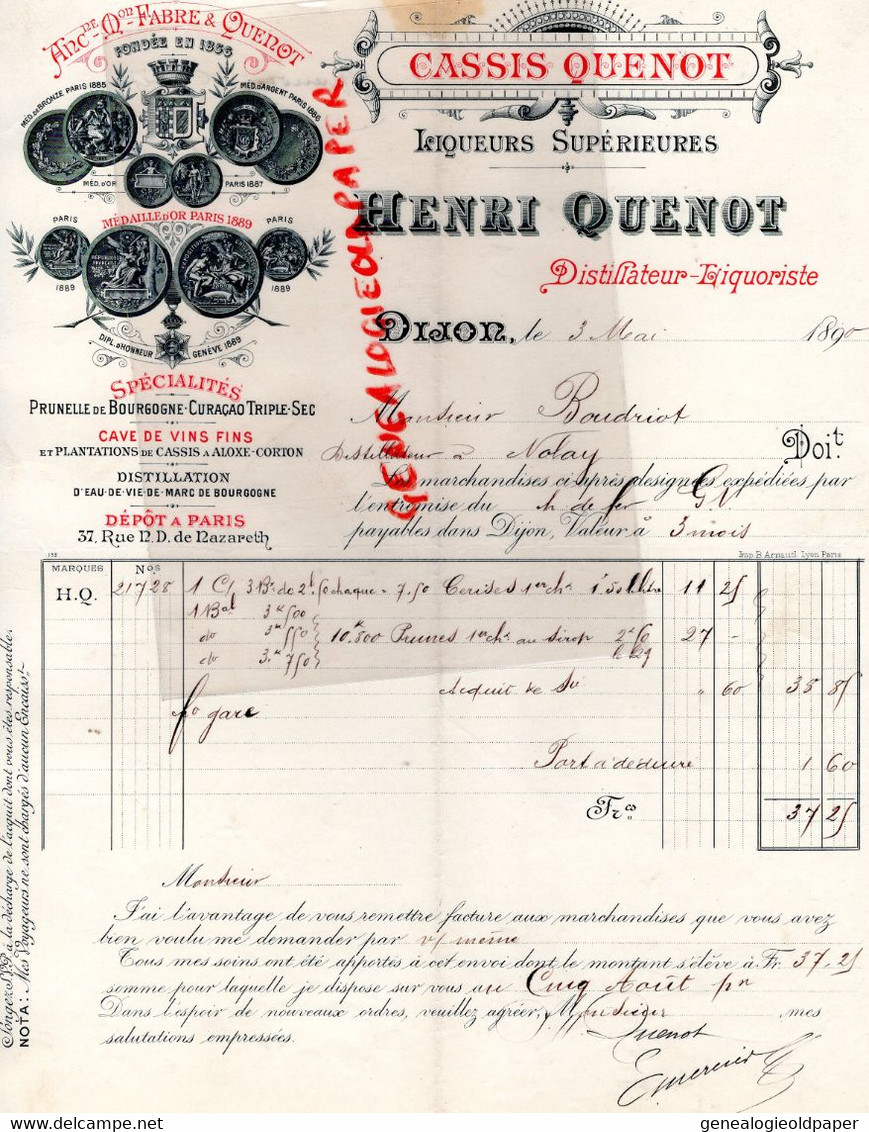 Anc.ne M.on Fabre & Quenot
FONDÉE EN 1856
MÉD. DE BRONZE PARIS 1885
MÉD. D'ARGENT PARIS 1886
MÉD. D'OR PARIS 1887
MÉDAILLE D'OR PARIS 1889
PARIS 1889
PARIS 1889
DIPL. D'HONNEUR GENÈVE 1889
SPÉCIALITÉS
PRUNELLE DE BOURGOGNE - CURAÇAO TRIPLE-SEC
CAVE DE VINS FINS
ET PLANTATIONS DE CASSIS A ALOXE-CORTON
DISTILLATION
D'EAU-DE-VIE-DE-MARC DE BOURGOGNE
DÉPÔT A PARIS
37, Rue N.D. de Nazareth
CASSIS QUENOT
LIQUEURS SUPÉRIEURES
HENRI QUENOT
Distillateur-Liquoriste
DIJON, le 3 Mai 1890
Monsieur Boudriot
Distillateur à Nolay
Doit.
Les marchandises ci-après désignées expédiées par
l'entremise du ch de fer G.V.
payables dans Dijon, Valeur à 3 mois
GENEALOGIEOLDPAPER
135
Imp. B. Arnaud, Lyon-Paris
MARQUES Nos
H.Q. 21728 1 C/ 3 Bx de 2l.50 chaque = 7.50 Cerises 1er ch. 1.50 l. litre 11 25
1 Bal 3k500
do 3k550 10k800 Prunes 1er ch. au sirop 2.50 27 -
do 3k750
Acquit de Su " 60 38 85
fo gare
Port à déduire 1 60
Fr.cs 37 25
Monsieur
J'ai l'avantage de vous remettre facture aux marchandises que vous avez
bien voulu me demander par v/ même
Tous mes soins ont été apportés à cet envoi dont le montant s'élève à Fr. 37-25
somme pour laquelle je dispose sur vous au Cinq Août pn
Dans l'espoir de nouveaux ordres, veuillez agréer, Monsieur mes
salutations empressées.
Quenot
Songez S.V.P. à la décharge de l'acquit dont vous êtes responsables.
NOTA: Mes Voyageurs ne sont chargés d'aucun Encaisst.
delcampe.net
genealogieoldpaper